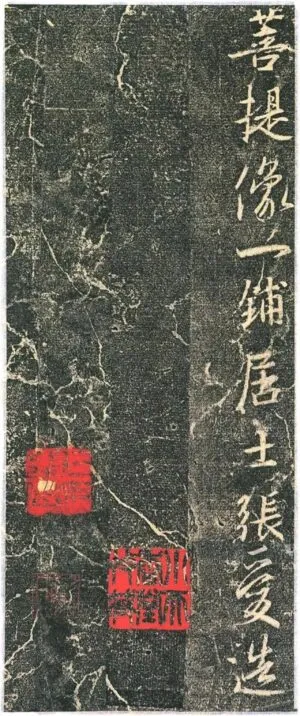 菩提像一鋪居士張愛造